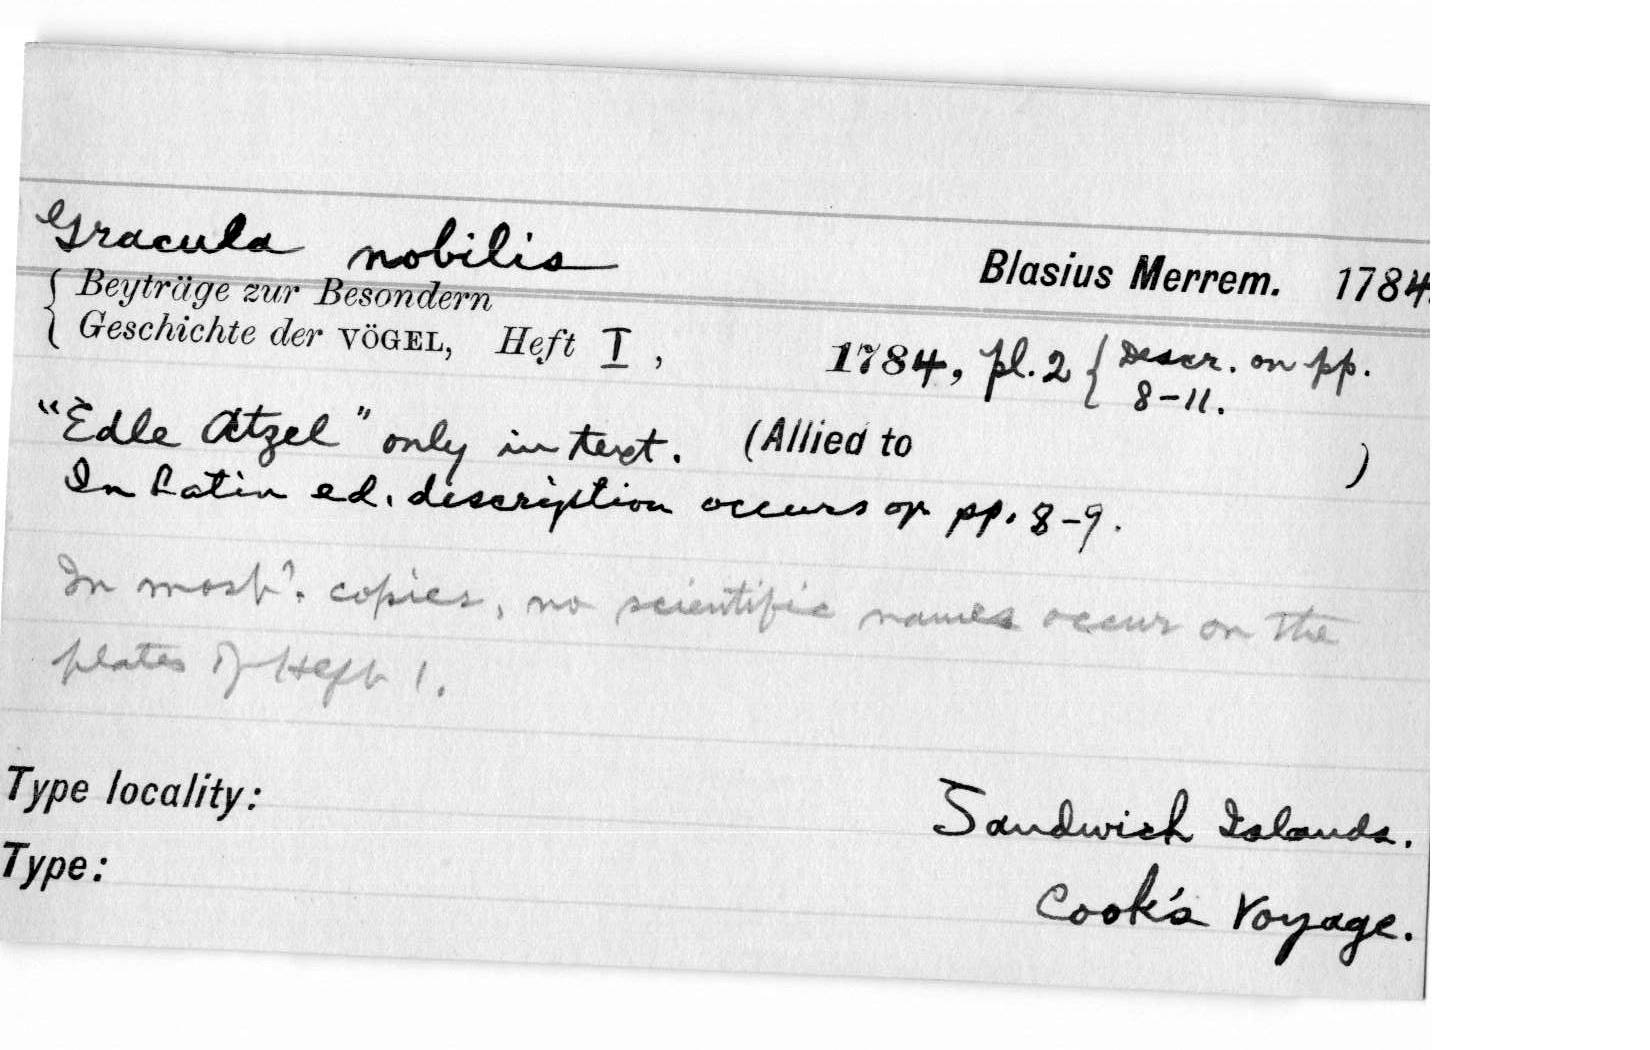 Gracula nobilis
Blasius Merrem. 1784.
{ Beyträge zur Besondern
Geschichte der VÖGEL, Heft I, 1784, pl. 2 { Descr. on pp.
8-11.
"Edle Atzel" only in text. (Allied to )
In Latin ed. description occurs on pp. 8-9.
In most?. copies, no scientific names occur on the
plates of Heft 1.
Type locality: Sandwich Islands.
Type: Cook's Voyage.